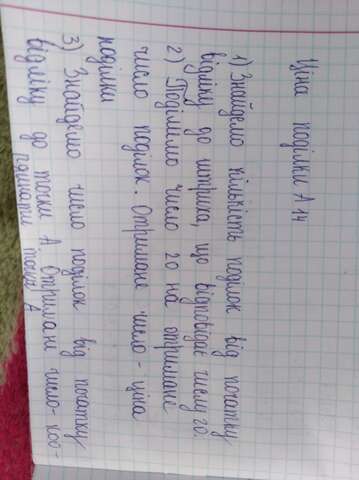 Ціна поділки А 14
1) Знайдемо кількість поділок від початку
відліку до штриха, що відповідає числу 20.
2) Поділимо число 20 на отримане
число поділок. Отримане число - ціна
поділки
3) Знайдемо число поділок від початку
відліку до точки А. Отримане число - коо-
рдината точки А